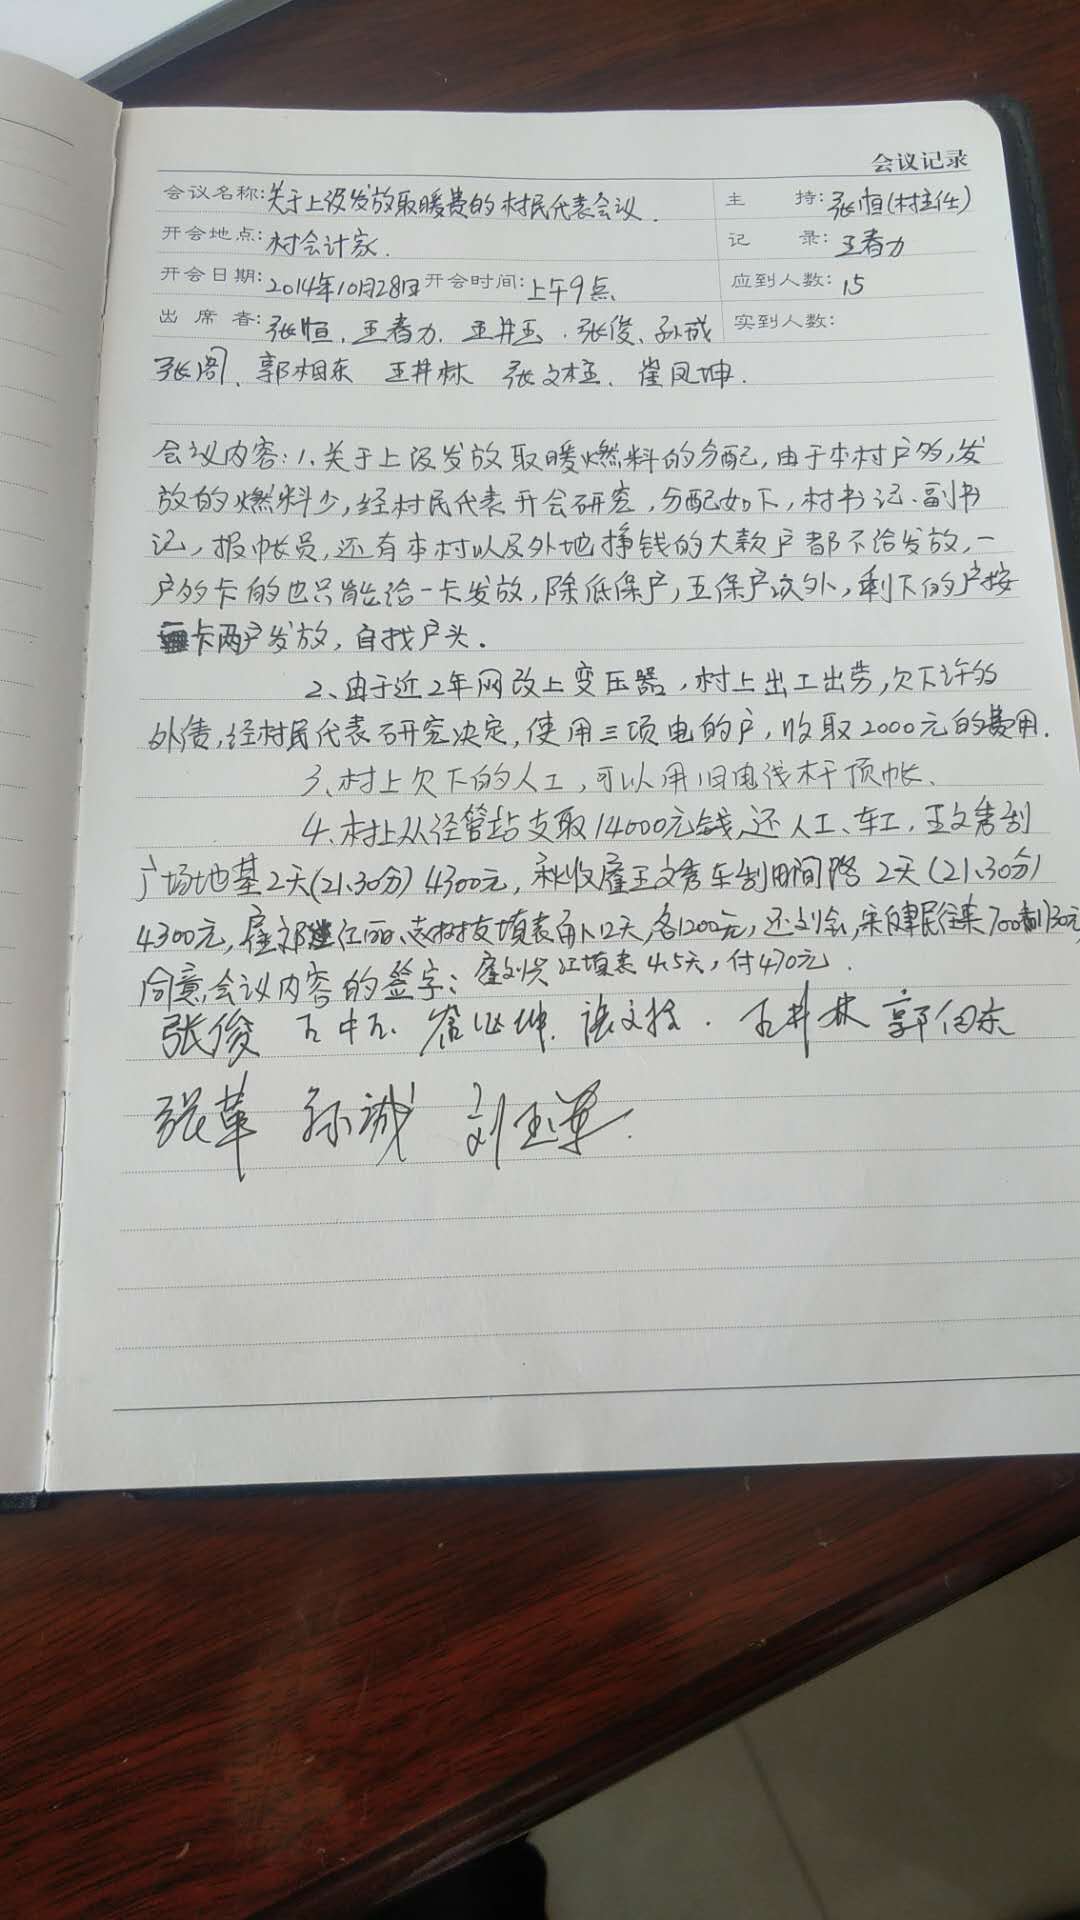 会议记录
会议名称:关于上级发放取暖费的村民代表会议. 主 持:张恒(村主任)
开会地点:村会计家. 记 录:王春力
开会日期:2014年10月28日 开会时间:上午9点 应到人数:15
出 席 者:张恒、王春力、王井玉、张俊、孙成 实到人数:
张阁、郭相东 王井林 张文柱、崔凤坤.
会议内容:1、关于上级发放取暖燃料的分配,由于本村户多,发
放的燃料少,经村民代表开会研究,分配如下,村书记、副书
记,报帐员,还有本村以及外地挣钱的大款户都不给发放,一
户多卡的也只能给一卡发放,除低保户,五保户以外,剩下的户按
一卡两户发放,自找户头.
2、由于近2年网改上变压器,村上出工出劳,欠下许多
外债,经村民代表研究决定,使用三项电的户,收取2000元的费用.
3、村上欠下的人工,可以用旧电线杆顶帐、
4、村上从经管站支取14000元钱,还人工、车工,王文秀刮
广场地基2天(21、30分)4300元,秋收雇王文秀车刮田间路2天(21、30分)
4300元,雇 江丽、 填表 12天,各1200元,还刘会,宋 民往来700 130元
同意会议内容的签字:雇刘兴江填表4.5天,付470元.
张俊 崔 坤. 张文柱. 王井林 郭相东
张革 孙诚 刘玉革.